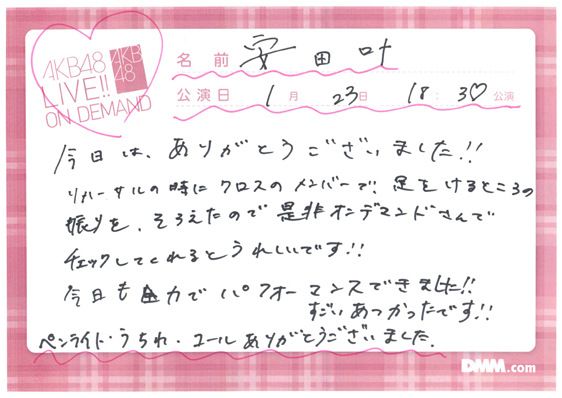 AKB48
LIVE!!
ON DEMAND
AKB
48
名前 安田叶
公演日 1月 23日 18:30 公演
今日は、ありがとうございました!!
リハーサルの時にクロスのメンバーで、足をけるところの
振りを、そろえたので是非オンデマンドさんで
チェックしてくれるとうれしいです!!
今日も全力でパフォーマンスできました!!
すごいあつかったです!!
ペンライト・うちわ・コールありがとうございました.
DMM.com